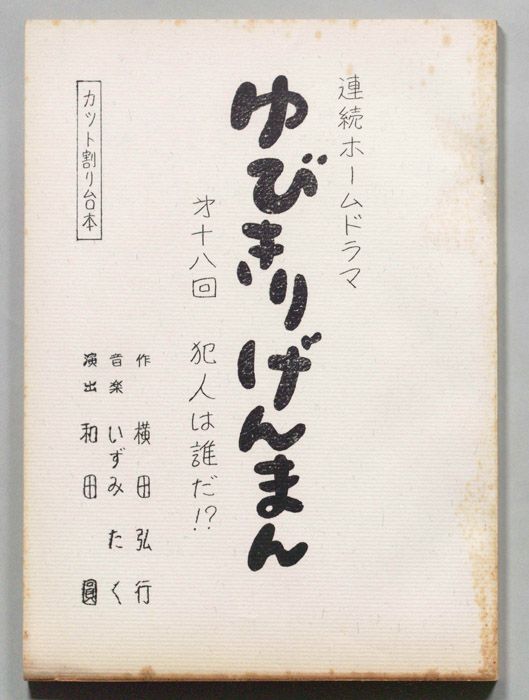 連続ホームドラマ
ゆびきりげんまん
第十八回 犯人は誰だ!?
作 横田弘行
音楽 いずみたく
演出 和田圓
カット割り台本